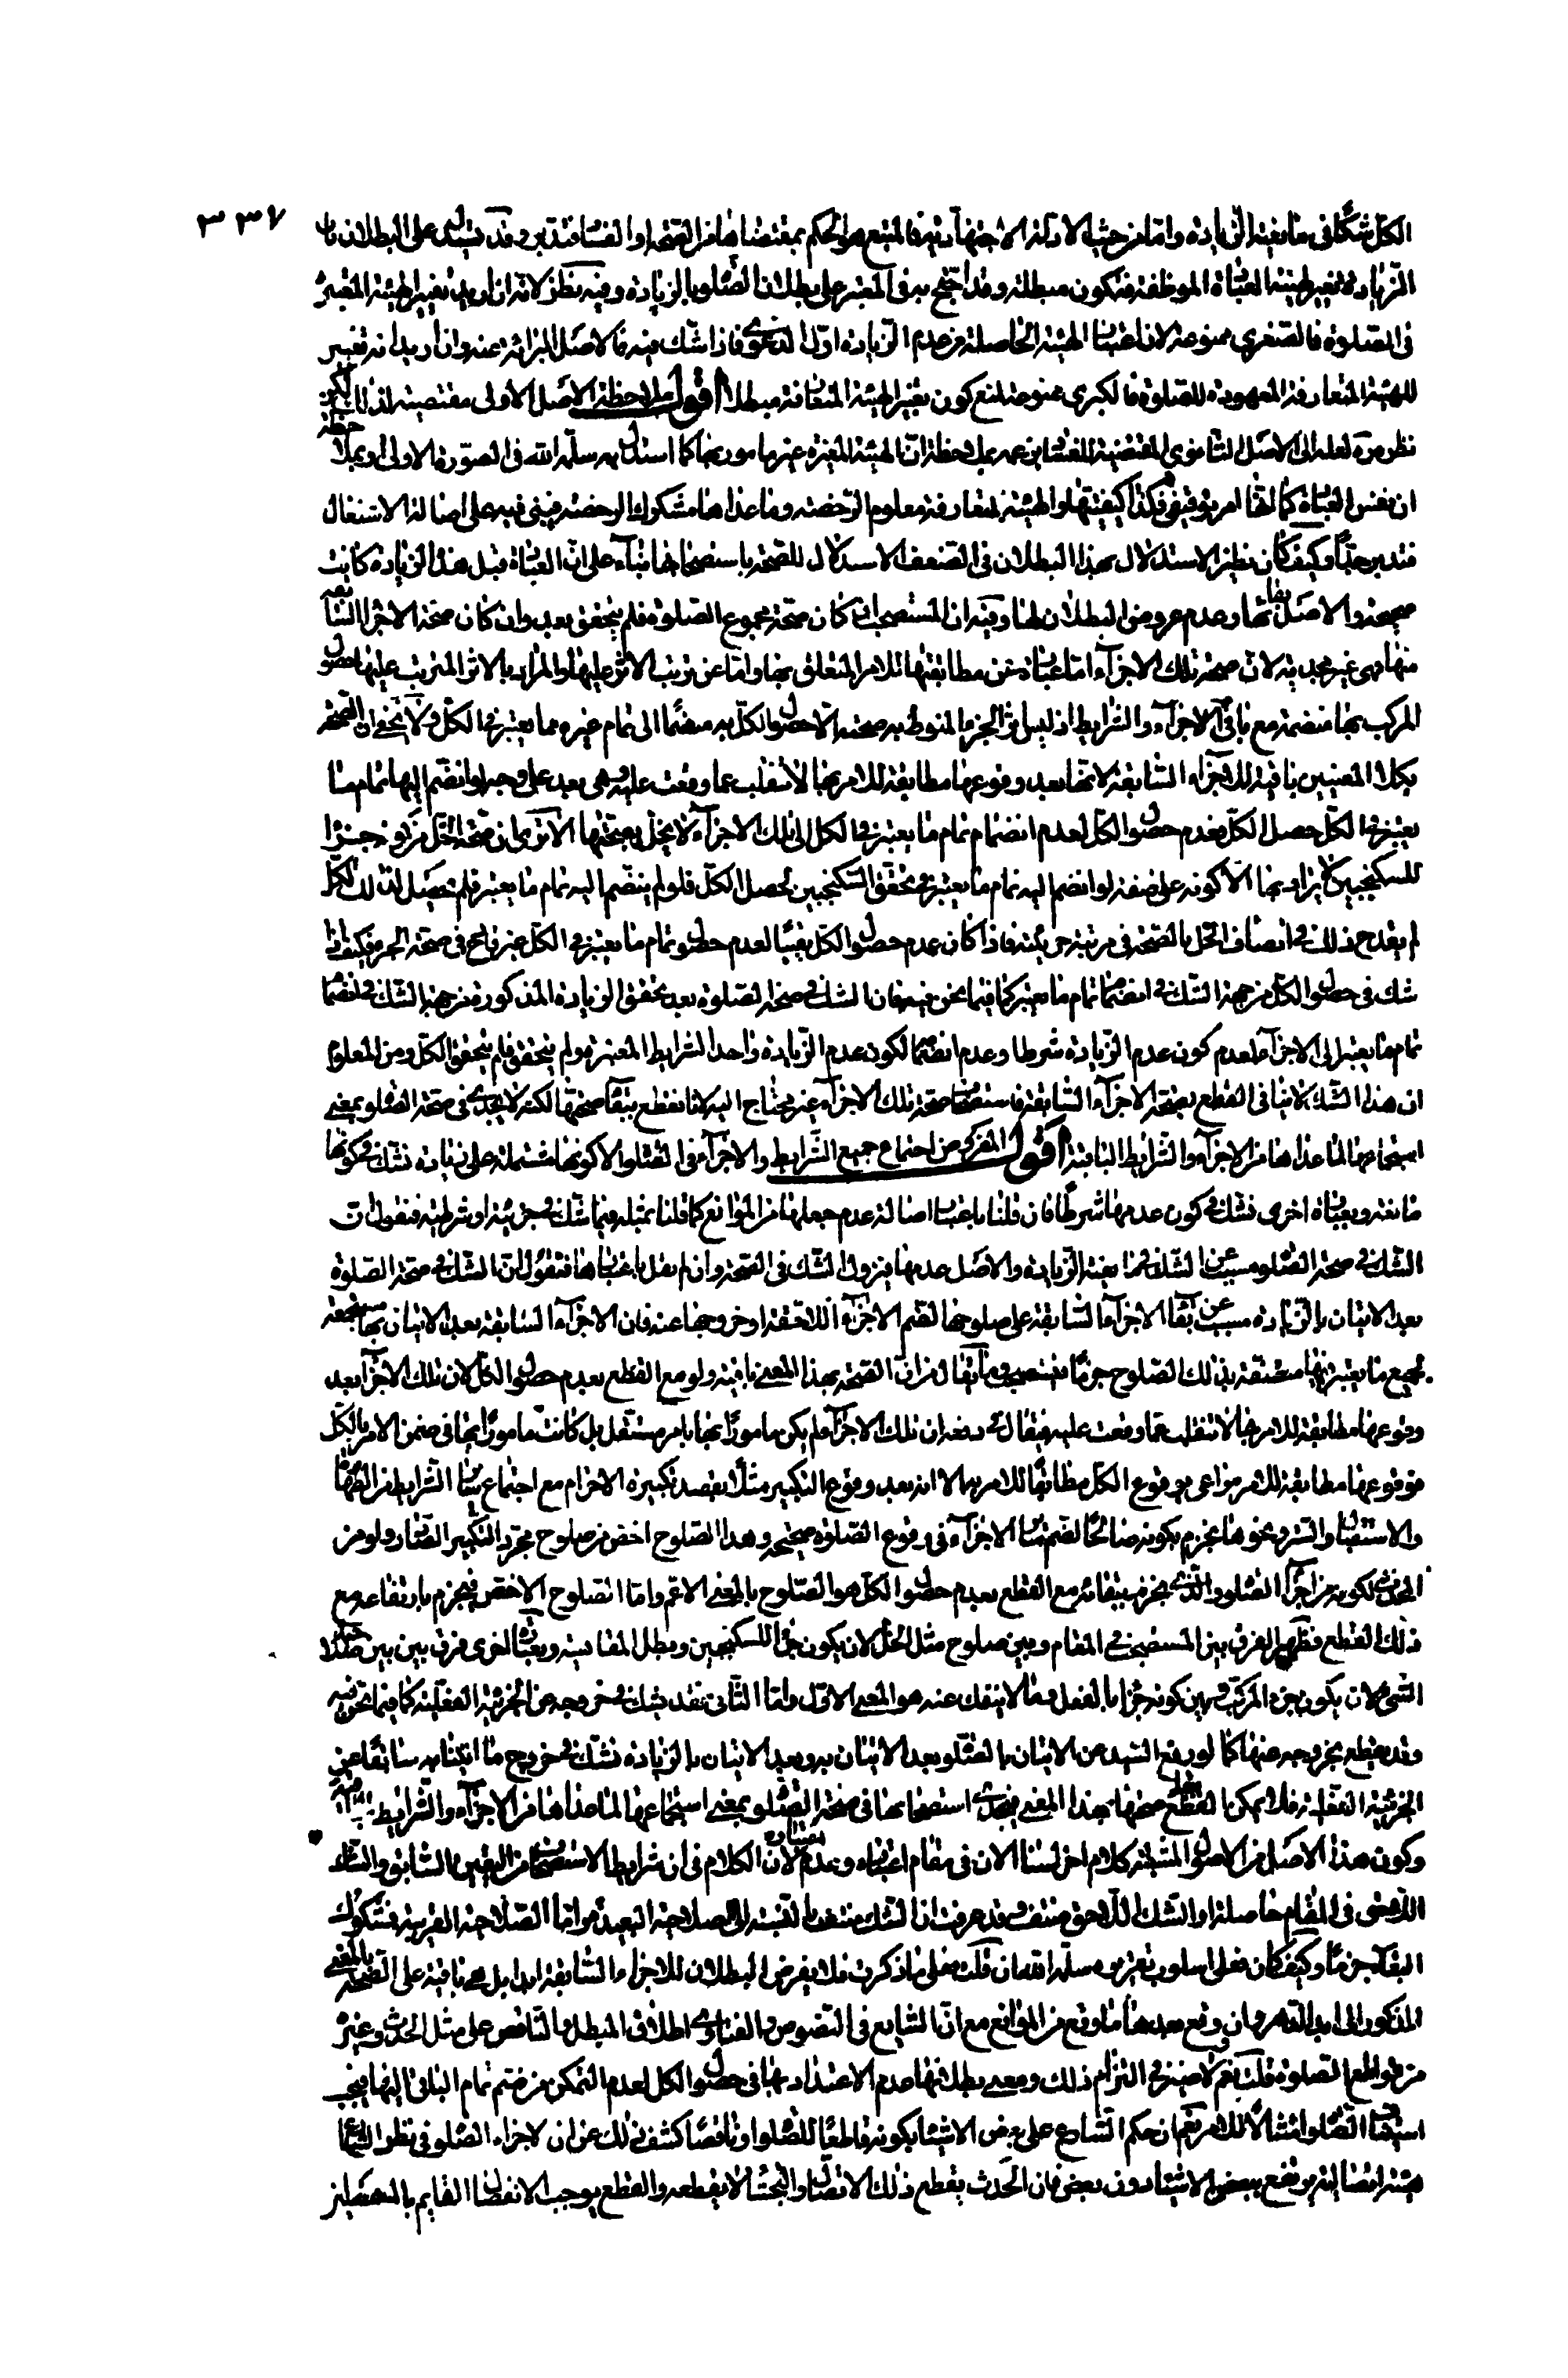 ٣٣٧
الكل شكا فى مانعية الزيادة واما من حيث الادلة الاجتهادية فالمتبع هو الحكم بمقتضاها من الصحة او الفساد فتدبر وقد يستدل على البطلان بان
الزيادة تغيير لهيئة العبادة الموظفة فتكون مبطلة وقد احتج به فى المعتبر على بطلان الصلوة بالزيادة وفيه نظر لانه ان اريد تغيير الهيئة المعتبرة
فى الصلوة فالصغرى ممنوعة لان اعتبار الهيئة الحاصلة من عدم الزيادة اول الدعوى فاذا شك فيه فالاصل البرائة عنه وان اريد انه تغيير
للهيئة المتعارفة المعهودة للصلوة فالكبرى ممنوعة لمنع كون تغيير الهيئة المتعارفة مبطلا اقول ملاحظة الاصل الاولى مقتضية لذلك لكن
نظر من لعله الى الاصل الثانوى المقتضية للفساد بملاحظة ان الهيئة المغيرة غير مامور بها كما استدل به سلمه الله فى الصورة الاولى او بملاحظة
ان نفس العبادة كما انها امر توقيفى فكذا كيفيتها والهيئة المتعارفة معلوم الرخصة وما عداها مشكوك الرخصة فيبنى فيه على اصالة الاشتغال
فتدبر جيدا وكيف كان نظير الاستدلال بهذا البطلان فى الضعف الاستدلال للصحة باستصحابها بناء على ان العبادة قبل هذه الزيادة كانت
صحيحة والاصل بقائها وعدم عروض البطلان لها وفيه ان المستصحب ان كان صحة مجموع الصلوة فلم يتحقق بعد وان كان صحة الاجزاء السابقة
منها فهى غير مجدية لان صحة تلك الاجزاء اما عبارة عن مطابقتها للامر المتعلق بها واما عن ترتب الاثر عليها والمراد بالاثر المترتب عليها حصول
المركب بها منضمة مع باقى الاجزاء والشرايط اذ ليس اثر الجزء المنوط به صحته الا حصول الكل به منضما الى تمام غيره مما يعتبر فى الكل ولا يخفى ان الصحة
بكلا المعنيين باقية للاجزاء السابقة لانها بعد وقوعها مطابقة للامر بها لا تنقلب عما وقعت عليه وهى بعد على وجه لو انضم اليها تمام ما
يعتبر فى الكل حصل الكل فعدم حصول الكل لعدم انضمام تمام ما يعتبر فى الكل الى تلك الاجزاء لا يخل بصحتها الا ترى ان صحة الخل من كونه جزءا
للسكنجبين لا يراد بها الا كونه على صفة لو انضم اليه تمام ما يعتبر فى تحقق السكنجبين لحصل الكل فلو لم ينضم اليه تمام ما يعتبر فلم يحصل لذلك الكل
لم يقدح ذلك فى اتصاف الخل بالصحة فى مرتبة جزئيته فاذا كان عدم حصول الكل يقينا لعدم حصول تمام ما يعتبر فى الكل غير قادح فى صحة الجزء فكيف اذا
شك فى حصول الكل من جهة الشك فى انضمام تمام ما يعتبر كما فيما نحن فيه فان الشك فى صحة الصلوة بعد تحقق الزيادة المذكورة من جهة الشك فى انضمام
تمام ما يعتبر الى الاجزاء لعدم كون عدم الزيادة شرطا وعدم انضمامه لكون عدم الزيادة واحد الشرايط المعتبرة ولم يتحقق فلم يتحقق الكل ومن المعلوم
ان هذا الشك لا ينافى القطع بصحة الاجزاء السابقة فاستصحاب صحة تلك الاجزاء غير محتاج اليه لانا نقطع ببقاء صحتها لكنه لا يجدى فى صحة الصلوة بمعنى
استجماعها لما عداها من الاجزاء والشرايط الباقية اقول المفروض اجتماع جميع الشرايط والاجزاء فى الصلوة الا كونها مشتملة على زيادة نشك فى كونها
مانعة وبعبارة اخرى نشك فى كون عدمها شرطا فان قلنا باعتبار اصالة عدم جعلها من الموانع كما قلنا بمثله فيما شك فى جزئيته او شرطيته فنقول ان
الشك فى صحة الصلوة مسبب عن الشك فى مانعية الزيادة والاصل عدمها فيزول الشك فى الصحة وان لم نقل باعتبارها فنقول ان الشك فى صحة الصلوة
بعد الاتيان بالزيادة مسبب عن بقاء الاجزاء السابقة على صلوحها لضم الاجزاء اللاحقة او خروجها عنه فان الاجزاء السابقة بعد الاتيان بها مستجمعة
لجميع ما يعتبر فيها متصفة بذلك الصلوح جزما فيستصحب وما يقال من ان الصحة بهذا المعنى باقية ولو مع القطع بعدم حصول الكل لان تلك الاجزاء بعد
وقوعها مطابقة للامر بها لا تنقلب عما وقعت عليه فيقال فى دفعه ان تلك الاجزاء لم يكن مامورا بها بامر مستقل بل كانت مامورا بها فى ضمن الامر بالكل
فوقوعها مطابقة للامر مراعى بوقوع الكل مطابقا للامر به الا انه بعد وقوع التكبير مثلا بقصد تكبيرة الاحرام مع اجتماع ساير الشرايط من الطهارة
والاستقبال والستر ونحوها نجزم بكونه صالحا لضم ساير الاجزاء فى وقوع الصلوة صحيحة وهذا الصلوح اخص من صلوح مجرد التكبير الصادر ولو من
المحدث لكونه من اجزاء الصلوة والذى نجزم ببقائه مع القطع بعدم حصول الكل هو الصلوح بالمعنى الاعم واما الصلوح الاخص فيجزم بارتفاعه مع
ذلك القطع فظهر الفرق بين المستصحب فى المقام وبين صلوح مثل الخل لان يكون جزءا للسكنجبين وبطل المقايسة وبعبارة اخرى فرق بين بين صلاحية
الشىء لان يكون جزء المركب وبين كونه جزءا بالفعل وما لا ينفك عنه هو المعنى الاول واما الثانى فقد يشك فى خروجه عن الجزئية الفعلية كما فيما نحن فيه
وقد يقطع بخروجه عنها كما لو رفع اليد عن الاتيان بالصلوة بعد الاتيان به وبعد الاتيان بالزيادة نشك فى خروج ما اتينا به سابقا عن
الجزئية الفعلية فلا يمكن القطع ببقاء صحتها بهذا المعنى فيجدى استصحابها فى صحة الصلوة بمعنى استجماعها لما عداها من الاجزاء والشرايط
وكون هذا الاصل من الاصول المثبتة كلام اخر لسنا الان فى مقام اعتباره وعدم اعتباره لان الكلام فى ان شرايط الاستصحاب من اليقين السابق والشك
اللاحق فى المقام حاصلة او الشك اللاحق منتف وقد عرفت ان الشك منتف بالنسبة الى الصلاحية البعيدة واما الصلاحية القريبة فمشكوك
البقاء جزما وكيف كان فعلى اسلوب تقريره سلمه الله فان قلت فعلى ما ذكرت فلا يعرض البطلان للاجزاء السابقة ابدا بل هى باقية على الصحة بالمعنى
المذكور الى ابد الدهر وان وقع بعدها ما وقع من الموانع مع ان الشايع فى النصوص والفتاوى اطلاق المبطل والناقض على مثل الحدث وغيره
من قواطع الصلوة قلت نعم ولا ضير فى التزام ذلك ومعنى بطلانها عدم الاعتداد بها فى حصول الكل لعدم التمكن من ضم تمام الباقى اليها فيجب
استيناف الصلوة امتثالا للامر نعم ان حكم الشارع على بعض الاشياء بكونه قاطعا للصلوة او ناقضا كشف ذلك عن ان لاجزاء الصلوة فى نظر الشارع
هيئة اتصالية يرتفع ببعض الاشياء دون بعض فان الحدث يقطع ذلك الاتصال والتجشأ لا يقطعه والقطع يوجب الانفصال القايم بالمنفصلين